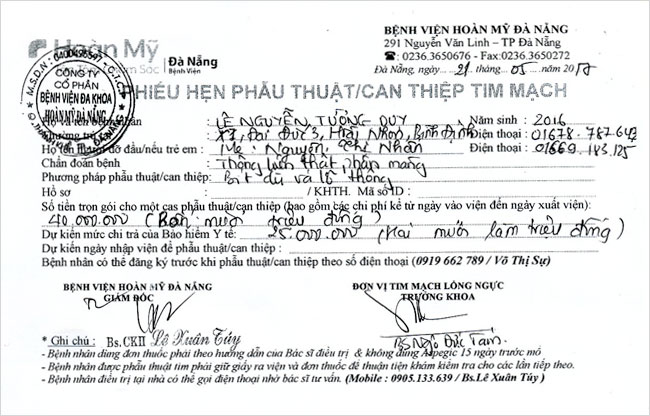 BỆNH VIỆN HOÀN MỸ ĐÀ NẴNG
291 Nguyễn Văn Linh – TP Đà Nẵng
☎: 0236.3650676 - Fax:0236.3650272
Hoàn Mỹ
Sóc
Đà Nẵng
Bệnh Viện
Đà Nẵng, ngày....21....tháng...05....năm 20
PHIẾU HẸN PHẪU THUẬT/CAN THIỆP TIM MẠCH
M.S.D.N: 0400495547 - C.T.C.P
CÔNG TY
CỔ PHẦN
BỆNH VIỆN ĐA KHOA
HOÀN MỸ ĐÀ NẴNG
Họ và tên bệnh nhân LÊ NGUYỄN TƯỜNG DUY Năm sinh : 2016
trú Đại Đức 3, Hoài Nhơn, Bình Định Điện thoại : 01678.787.647
Họ tên người đỡ đầu/nếu trẻ em : Mẹ: Nguyễn Nhân Điện thoại : 01669.183.125
Chẩn đoán bệnh : Thông liên thất phần màng
Phương pháp phẫu thuật/can thiệp : Bít dù và lỗ thông
Hồ sơ : / KHTH. Mã số ID :
Số tiền trọn gói cho một cas phẫu thuật/can thiệp (bao gồm các chi phí kể từ ngày vào viện đến ngày xuất viện):
40.000.000 (Bốn mươi triệu đồng)
Dự kiến mức chi trả của Bảo hiểm Y tế: 25.000.000 (Hai mươi lăm triệu đồng)
Dự kiến ngày nhập viện để phẫu thuật/can thiệp :
Bệnh nhân có thể đăng ký trước khi phẫu thuật/can thiệp theo số điện thoại (0919 662 789 / Võ Thị Sự)
BỆNH VIỆN HOÀN MỸ ĐÀ NẴNG
GIÁM ĐỐC
ĐƠN VỊ TIM MẠCH LỒNG NGỰC
TRƯỞNG KHOA
Bs.CKII Lê Xuân Túy
Bs Ngô Đức Tám
* Ghi chú :
- Bệnh nhân dùng đơn thuốc phải theo hướng dẫn của Bác sĩ điều trị & không dùng Aspegic 15 ngày trước mổ
- Bệnh nhân được phẫu thuật tim phải giữ giấy ra viện và đơn thuốc để thuận tiện khám kiểm tra cho các lần tiếp theo.
- Bệnh nhân điều trị tại nhà có thể gọi điện thoại nhờ bác sĩ tư vấn. (Mobile : 0905.133.639 / Bs.Lê Xuân Túy )